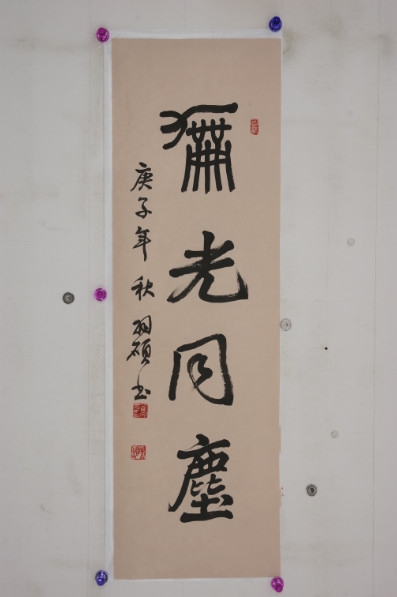 龢光同塵
庚子年秋羽碩书